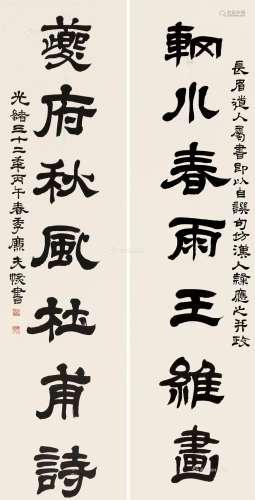 長眉道人屬書即以自譔句坊漢人隸應之并政
輞川春雨王維畫
夔府秋風杜甫詩
光緒三十二年丙午春季廉夫恢書